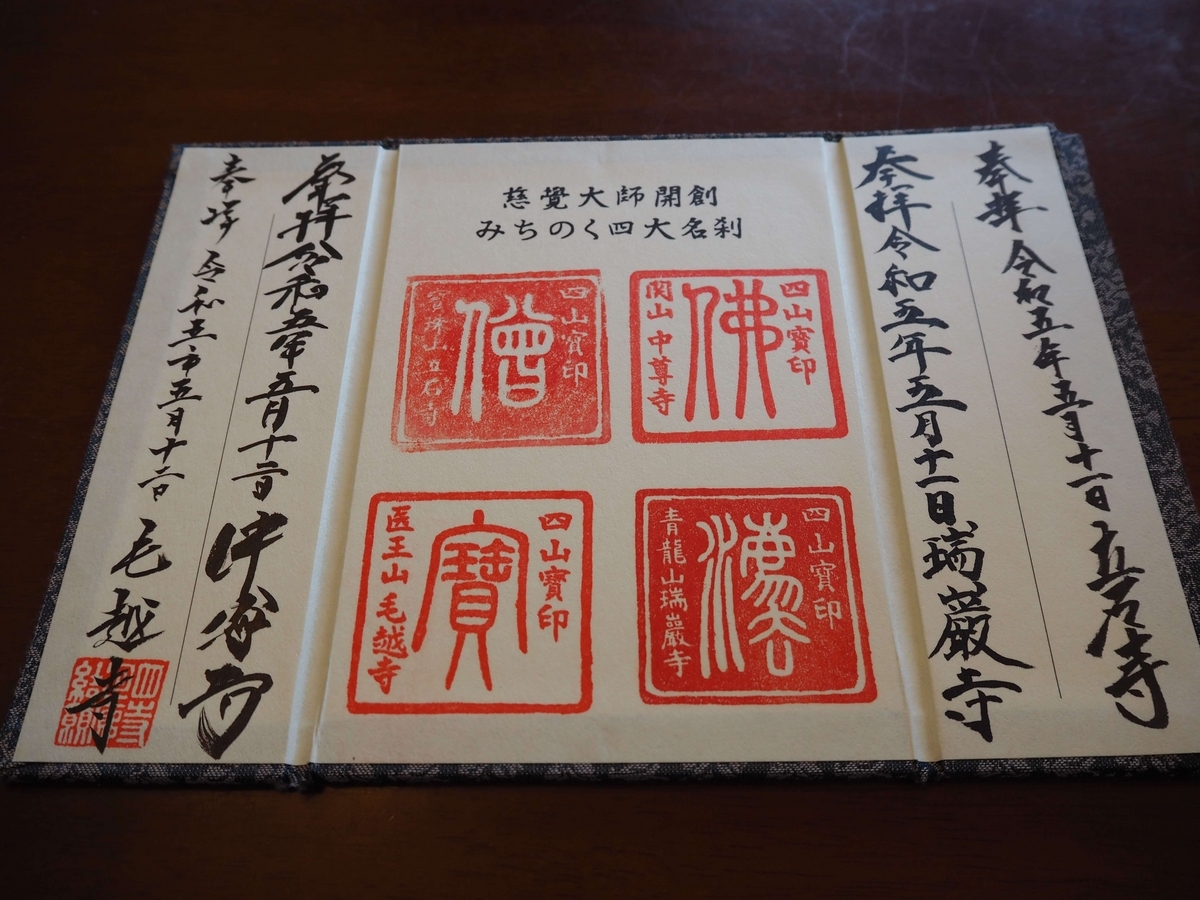 奉拝 令和五年五月十一日 立石寺
奉拝 令和五年五月十一日 瑞巌寺
慈覺大師開創
みちのく四大名刹
四山寶印
佛
関山中尊寺
四山寶印
僧
寶珠山立石寺
四山寶印
灋
青龍山瑞巖寺
四山寶印
寶
医王山毛越寺
奉拝 令和五年五月十二日 中尊寺
奉拝 令和五年五月十二日 毛越寺